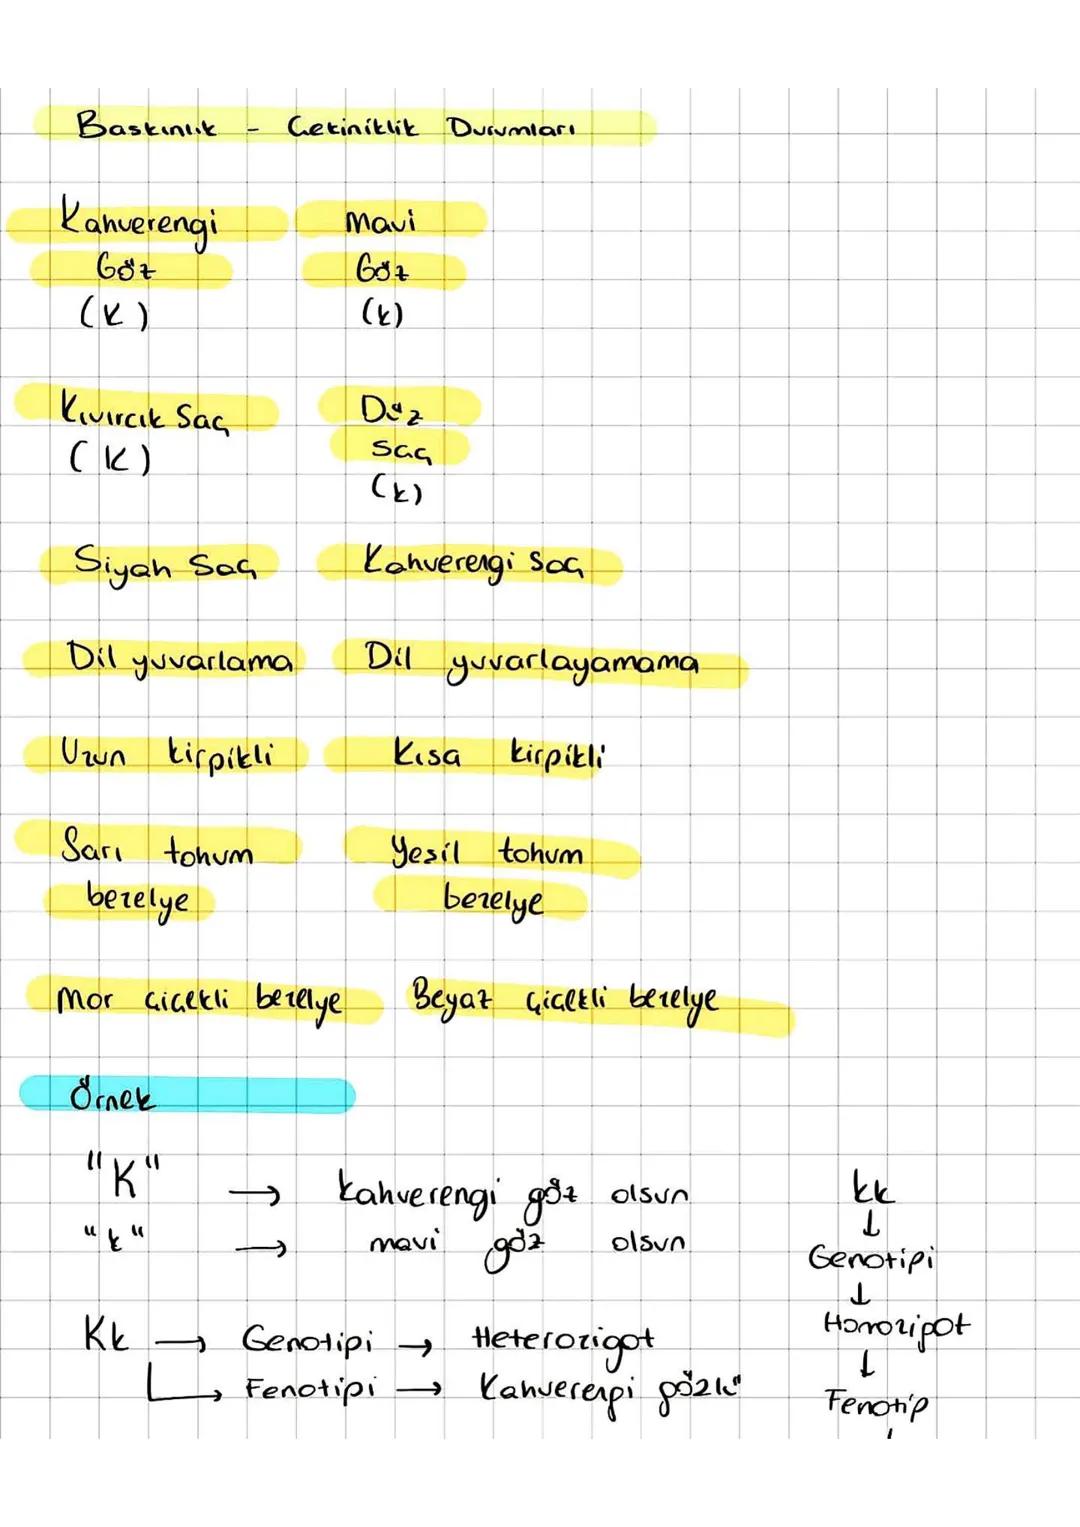 Baskınlık - Çekiniklik Durumları
Kahverengi Mavi
Göz Göz
(K) (k)
Kıvırcık Saç Düz
(K) saç
(k)
Siyah Saç Kahverengi Saç
Dil yuvarlama Dil yuvarlayamama
Uzun kirpikli Kısa kirpikli
Sarı tohum Yesil tohum
bezelye bezelye
Mor çiçekli bezelye Beyaz çiçekli bezelye
Örnek
"K" → kahverengi göz olsun kk
"k" → mavi göz olsun ↓
Genotipi
↓
Kk → Genotipi → Heterozigot Homozigot
↓
→ Fenotipi → Kahverengi gözlü Fenotip